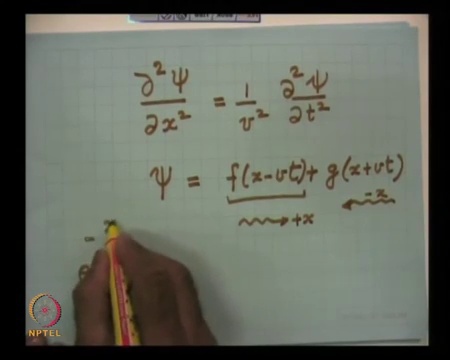 ∂²Ψ/∂x² = 1/v² ∂²Ψ/∂t²
Ψ = f(x-vt) + g(x+vt)
→+x ←-x
NPTEL